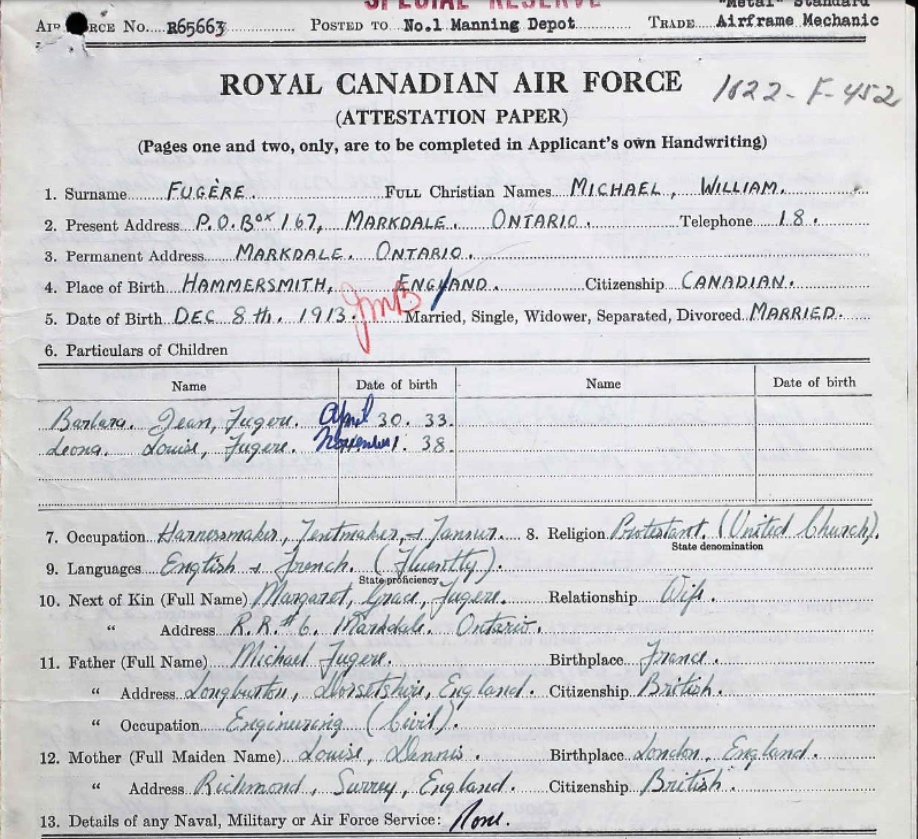 SPECIAL RESERVE "Metal" Standard
AIR FORCE No. R65663 POSTED TO No.1 Manning Depot TRADE Airframe Mechanic
ROYAL CANADIAN AIR FORCE 1622-F-452
(ATTESTATION PAPER)
(Pages one and two, only, are to be completed in Applicant's own Handwriting)
1. Surname FUGÈRE. FULL Christian Names MICHAEL, WILLIAM.
2. Present Address P.O. Box 167, MARKDALE. ONTARIO. Telephone 18.
3. Permanent Address MARKDALE. ONTARIO.
4. Place of Birth HAMMERSMITH, ENGLAND. Citizenship CANADIAN.
5. Date of Birth DEC 8th. 1913. Married, Single, Widower, Separated, Divorced MARRIED.
6. Particulars of Children
Name Date of birth Name Date of birth
Barbara. Jean, Fugere. April 30. 33.
Leona. Louise, Fugere. November 1. 38.
7. Occupation Harnessmaker, Tentmaker, & Tanner. 8. Religion Protestant. (United Church).
State denomination
9. Languages English & French. (Fluently).
State proficiency
10. Next of Kin (Full Name) Margaret, Grace, Fugere. Relationship Wife.
" Address R.R.#6. Markdale. Ontario.
11. Father (Full Name) Michael Fugere. Birthplace France.
" Address Longburton, Dorsetshire, England. Citizenship British.
" Occupation Engineering (Civil).
12. Mother (Full Maiden Name) Louise, Dennis. Birthplace London, England.
" Address Richmond, Surrey, England. Citizenship British.
13. Details of any Naval, Military or Air Force Service: None.